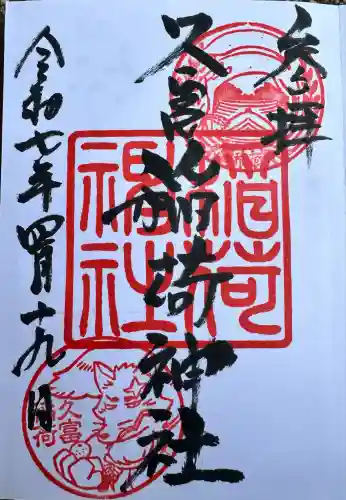 参拝
久富稲荷神社
令和七年四月十九日
稲荷
神社
久富
稲荷